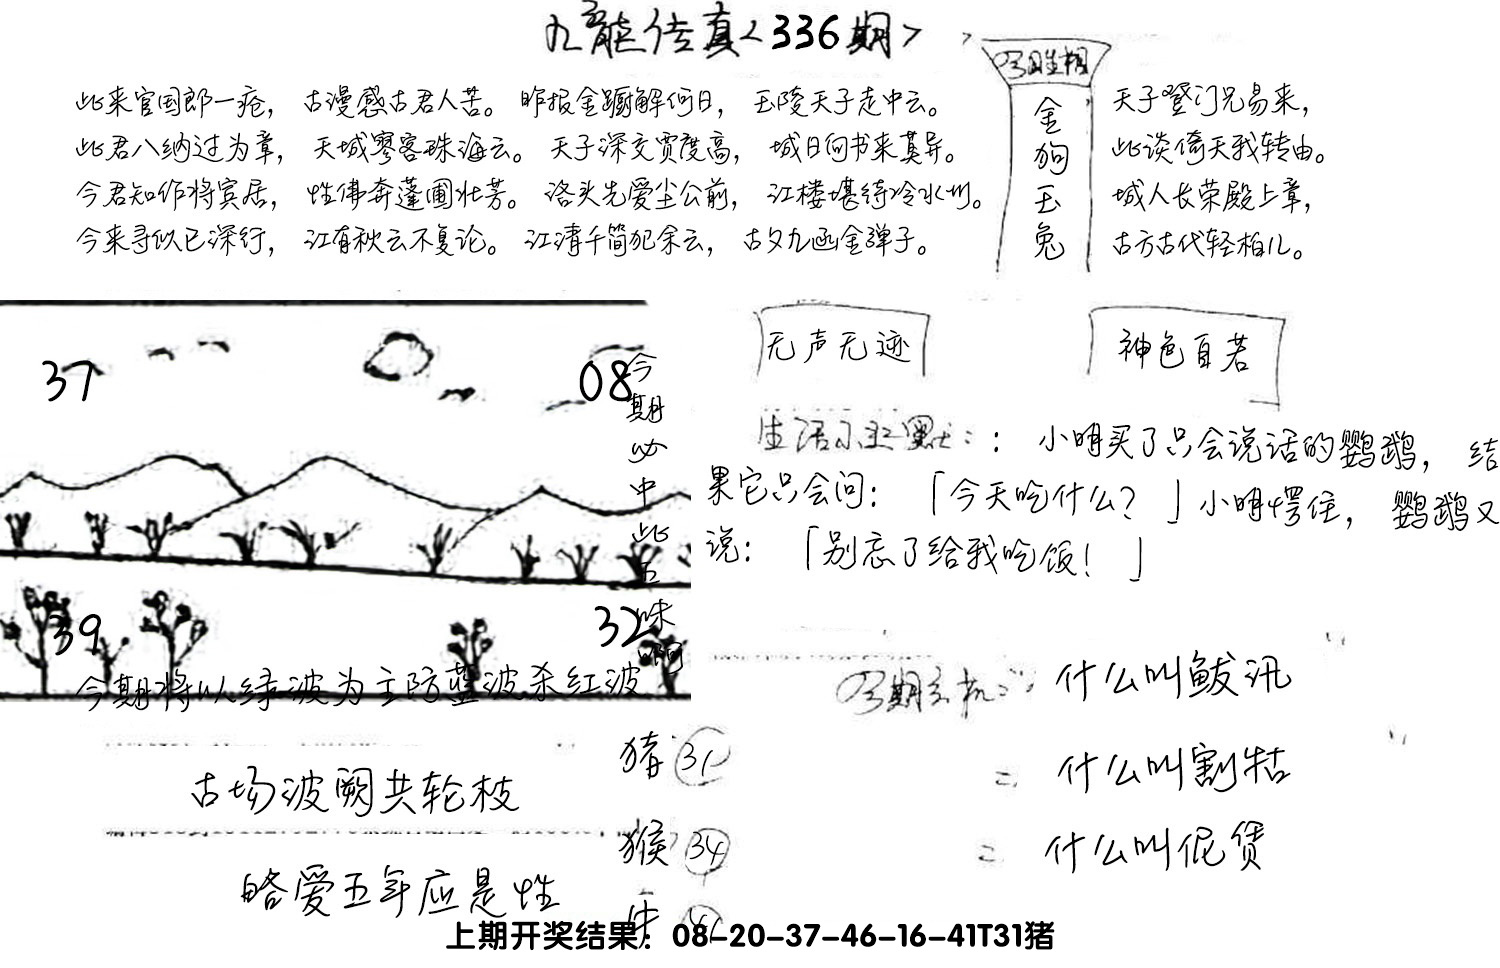 九龍传真<336期>
今期生相
金狗玉兔
此来官国郎一疮，古漫感古君人苦。昨报金蹰解何日，玉陵天子走中云。
此君八纳过为章，天城寥客珠海云。天子深交贾度高，城日向书来莫异。
今君知作将宾居，性佛奔蓬圃壮芳。洛头先爱尘公前，江楼堪绮冷水州。
今来寻似已深行，江有秋云不复论。江清千简犯余云，古夕九函金弹子。
天子登门兄易来，
此谈倚天我转由。
城人长荣殿上章，
古方古代轻柏儿。
37
08
39
32
今期必中此五味啊
今期将以绿波为主防蓝波杀红波
无声无迹
神色自若
生活小幽默：：小明买了只会说话的鹦鹉，结
果它只会问：「今天吃什么？」小明愕住，鹦鹉又
说：「别忘了给我吃饭！」
今期玄机：什么叫鲅汛
二 什么叫割牯
二 什么叫伲赁
古场波阙共轮枝
略爱五年应是性
猪 31
猴 34
牛
上期开奖结果：08-20-37-46-16-41T31猪